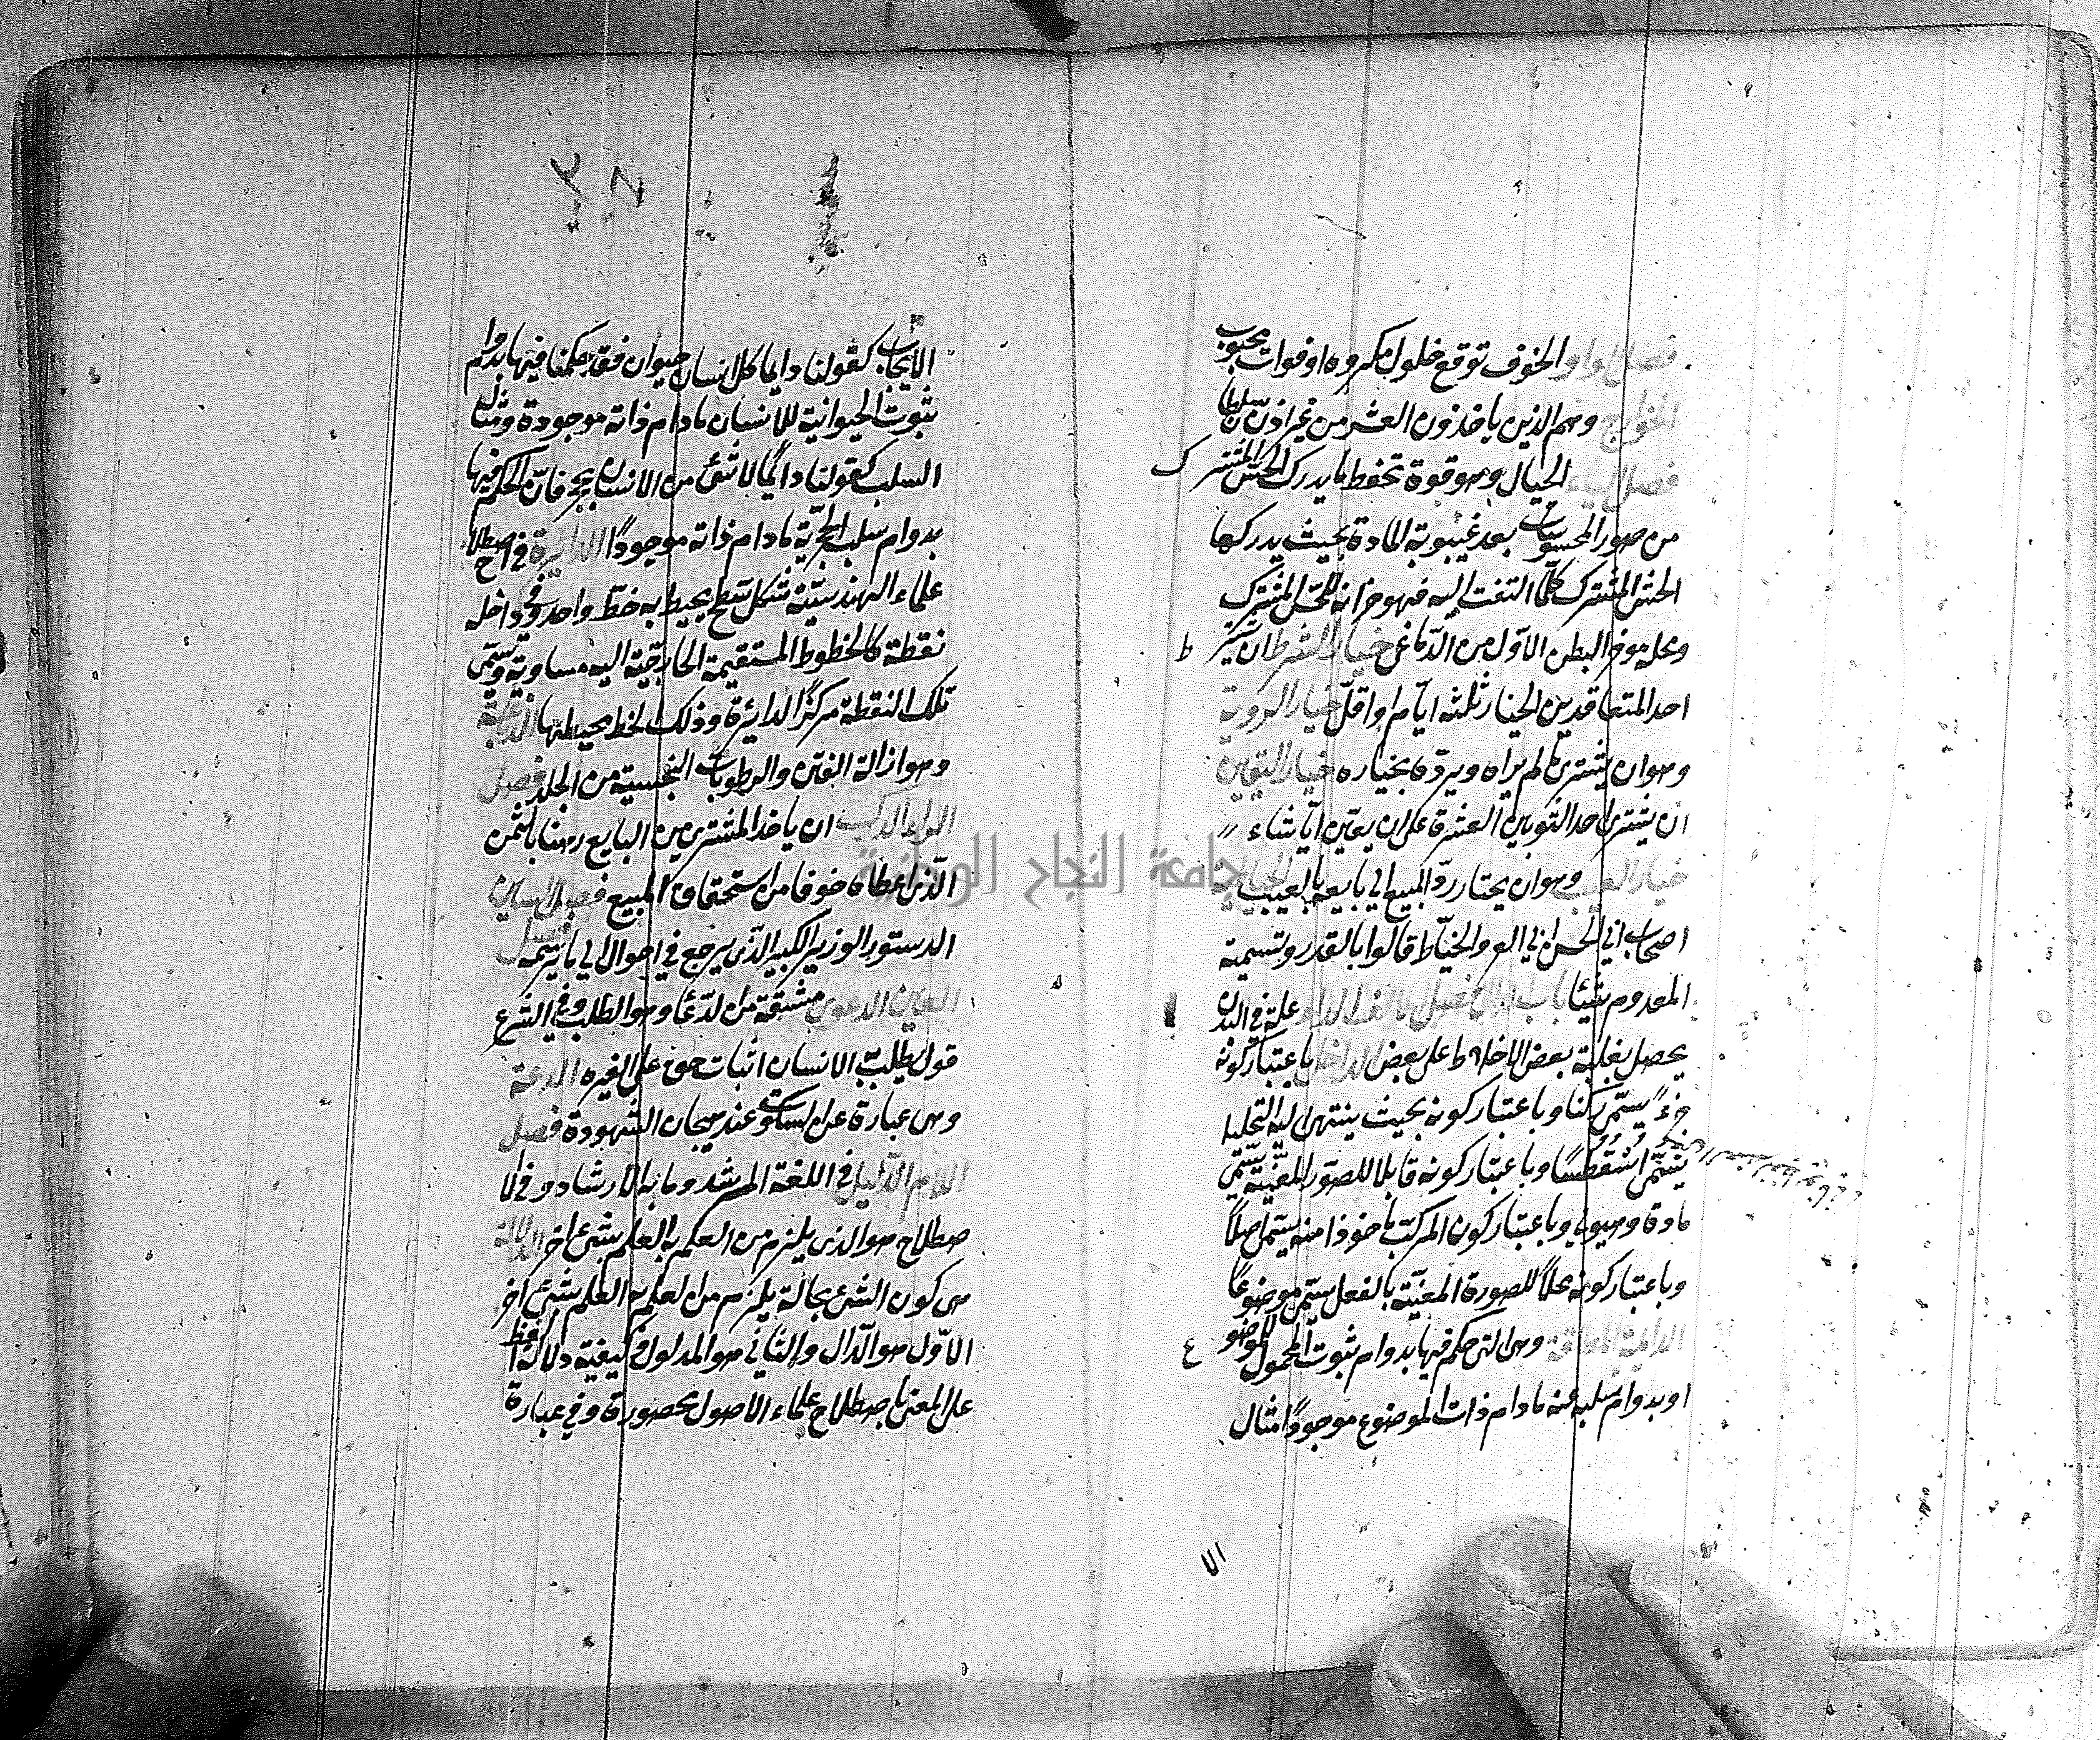 فصل الواو الخوف توقع حلول مكروه او فوات محبوب
الخوارج وهم الذين ياخذون العشر من غير اذن سلطان
فصل الياء الخيال وهو قوة تحفظ ما يدرك الحس المشترك
من صور المحسوسات بعد غيبوبة المادة بحيث يدركها
الحس المشترك كلما التفت اليه فهو خزانة للحس المشترك
ومحله موخر البطن الاول من الدماغ خيار الشرط ان يشترط
احد المتعاقدين الخيار ثلثة ايام او اقل خيار الروية
وهو ان يشترى ما لم يراه ويرده بخياره خيار التعيين
ان يشترى احد الثوبين العشرة على ان يعين ايا شاء
خيار العيب وهو ان يختار رد المبيع الى بايعه بالعيب الخياطية
اصحاب ابى الحسن ابى الخياط قالوا بالقدر وتسمية
المعدوم شيئا باب الدال فصل الالف الداء علة فى البدن
يحصل بغلبة بعض الاخلاط على بعض الداخل باعتبار كونه
جزءً يسمّى ركنا وباعتبار كونه بحيث ينتهى اليه التحليل
يسمّى اسْتُقُصًّا وباعتبار كونه قابلا للصور المعيّنة يسمّى
مادة وهيولى وباعتبار كون المركب ماخوذا منه يسمّى اصلاً
وباعتبار كونه محلاً للصورة المعيّنة بالفعل يسمّى موضوعًا
الدايمة المطلقة وهى التى حكم فيها بدوام ثبوت المحمول للموضوع
او بدوام سلبه عنه ما دام ذات الموضوع موجودًا مثال
الا
٢
الايجاب كقولنا دايما كل انسان حيوان فقد حكمنا فيها بدوام
ثبوت الحيوانية للانسان ما دام ذاته موجودة ومثال
السلب كقولنا دايمًا لا شئ من الانسان بحجر فانّ الحكم فيها
بدوام سلب الحجريّة ما دام ذاته موجودًا الدايرة فى اصطلاح
علماء الهندسيّة شكل سطح يحيط به خطّ واحد وفى داخله
نقطة كالخطوط المستقيمة الخارجيّة اليه مساوية وتسمّى
تلك النقطة مركزًا لدايرة وذلك الخط محيطها الدباغة
وهو ازالة النتن والرطوبات النجسية من الجلد فصل
الراء الدرك ان ياخذ المشترى من البايع رهنا بالثمن
الّذى اعطاه خوفا من استحقاق المبيع فصل السين
الدستور الوزير الكبير الذى يرجع فى احوال الى ما يرسمه فصل
العين الدعوى مشتقة من الدّعا وهو الطلب وفى الشرع
قول يطلب الانسان اثبات حق على الغيره الدعة
وهى عبارة عن السكون عند هيجان الشهودة فصل
اللام الدّليل فى اللغة المرشد وما به الارشاد وفى الا
صطلاح هو الذى يلزم من العلم به العلم بشئ اخر الدلالة
هى كون الشئ بحالة يلزم من العلم به العلم بشئ اخر
الاوّل هو الدّال والثّانى هو المدلول وكيفية دلالة اللفظ
على المعنى باصطلاح علماء الاصول محصورة وفى عبارة
جامعة النجاح الوطنية